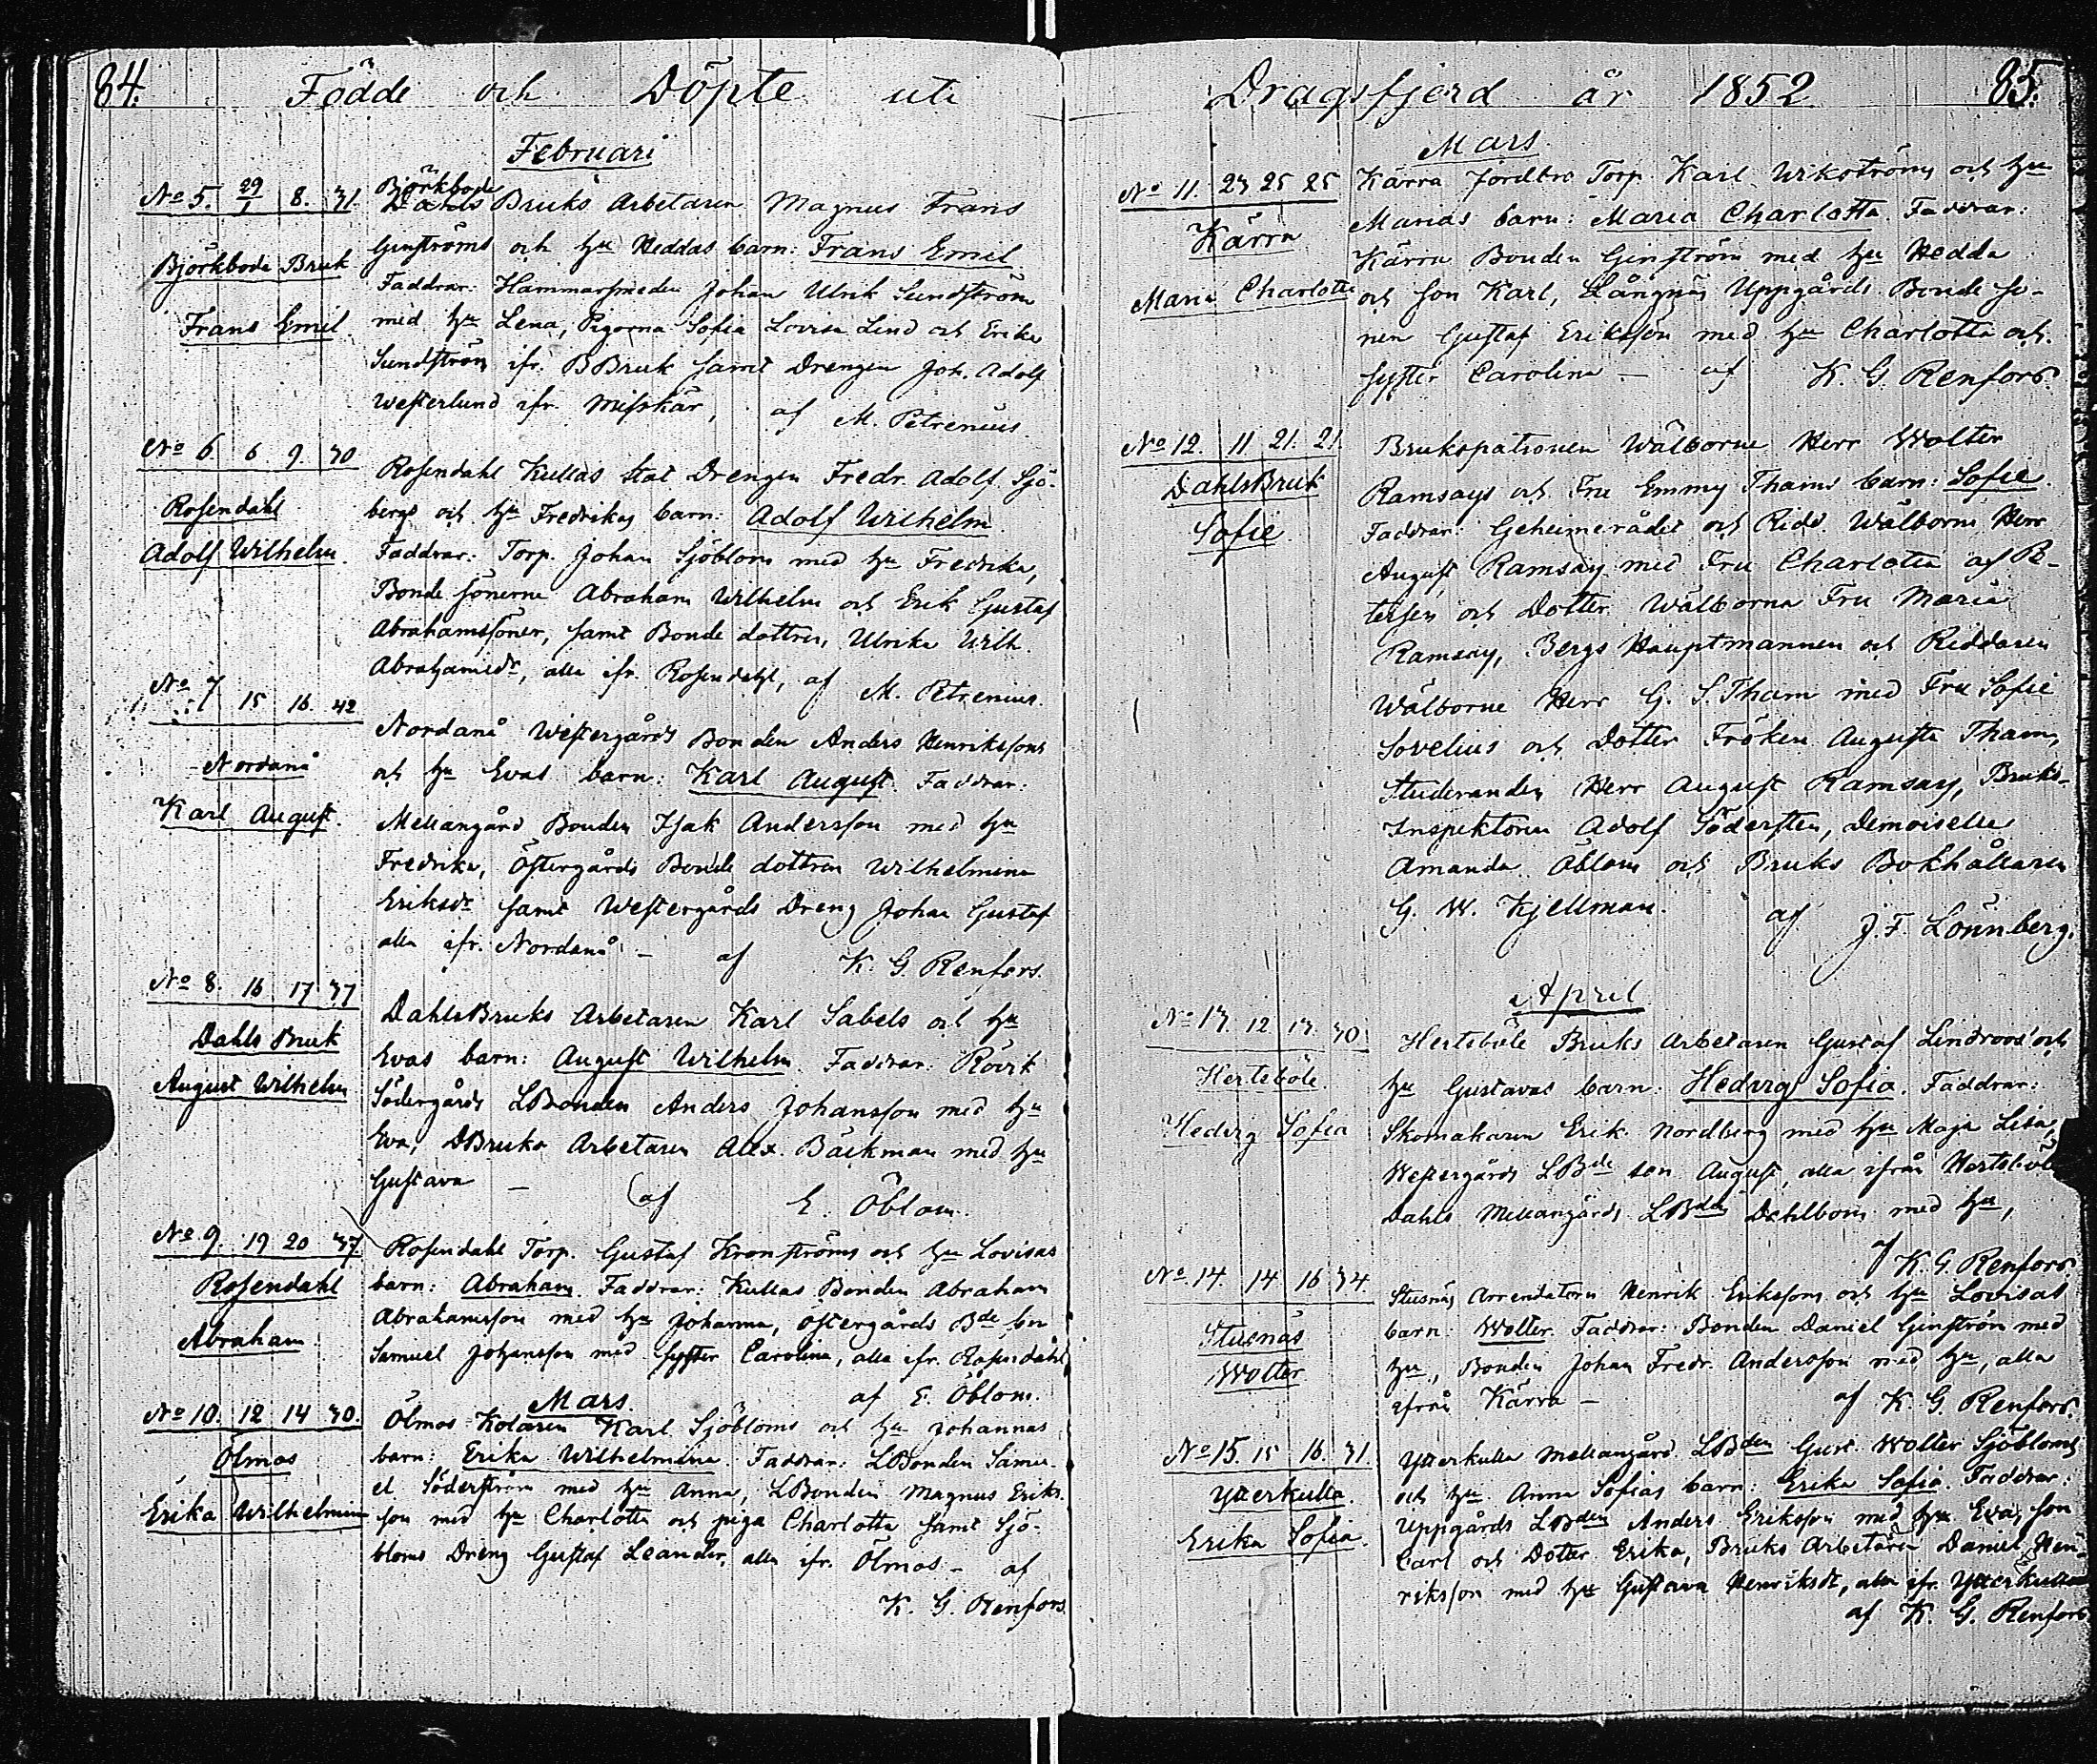 84.
Födde och Döpte uti
Februari
No 5. 29/1 8. 31.
Björkboda Bruk
Frans Emil
Björkboda
Dahls Bruks Arbetaren Magnus Frans
Ginströms och hu Heddas barn: Frans Emil
Faddrar: Hammarsmeden Johan Ulrik Sundström
med hu Lena, Pigorna Sofia Lovisa Lind och Erika
Sundström ifr. BBruk samt Drengen Joh. Adolf
Westerlund ifr. Misskär, af M. Petrenius
No 6. 6. 9. 30
Rosendahl
Adolf Wilhelm.
Rosendahl Kullas Stat Drengen Fredr. Adolf Sjö-
bergs och hu Fredrikas barn: Adolf Wilhelm.
Faddrar: Torp. Johan Sjöblom med hu Fredrika,
Bonde sönerne Abraham Wilhelm och Erik Gustaf
Abrahamssöner, samt Bonde dottren Ulrika Wilh.
Abrahamsdr, alla ifr. Rosendahl, af M. Petrenius.
No 7 15 16. 42
Nordanå
Karl August.
Nordanå Westergårds Bonden Anders Henrikssons
och hu Evas barn: Karl August. Faddrar:
Mellangård Bonden Isak Andersson med hu
Fredrika, Östergårds Bonde dottren Wilhelmina
Eriksdr samt Westergårds Dreng Johan Gustaf
alla ifr. Nordanå – af K. G. Renfors.
No 8. 16 17 37
Dahls Bruk
August Wilhelm
DahlsBruks Arbetaren Karl Sabels och hu
Evas barn: August Wilhelm. Faddrar: Rövik
Södergårds LBonden Anders Johansson med hu
Eva, DBruks Arbetaren Alex. Bäckman med hu
Gustava – af E. Öblom.
No 9. 19 20 37
Rosendahl
Abraham
Rosendahl Torp. Gustaf Kronströms och hu Lovisas
barn: Abraham. Faddrar: Kullas Bonden Abraham
Abrahamsson med hu Johanna, Östergårds Bde son
Samuel Johansson med syster Carolina, alla ifr. Rosendahl
af E. Öblom.
Mars.
No 10. 12 14 30.
Ölmos
Erika Wilhelmina
Ölmos Kolaren Karl Sjöbloms och hu Johannas
barn: Erika Wilhelmina. Faddrar: LBonden Samu-
el Söderström med hu Anna, LBonden Magnus Eriks-
son med hu Charlotta och piga Charlotta samt Sjö-
bloms Dreng Gustaf Leander, alla ifr. Ölmos – af
K. G. Renfors.
Dragsfjerd år 1852
85.
Mars.
No 11. 23 25 25
Kärra
Maria Charlotta
Kärra Jordbro Torp. Karl Wikströms och hu
Marias barn: Maria Charlotta. Faddrar:
Kärra Bonden Ginström med hu Hedda
och son Karl, Långnäs Uppgårds Bonde so-
nen Gustaf Eriksson med hu Charlotta och
syster Carolina – af K. G. Renfors.
No 12. 11 21. 21.
DahlsBruk
Sofie.
Brukspatronen Wälborne Herr Wolter
Ramsays och Fru Emmy Thams barn: Sofie.
Faddrar: Geheimerådet och Ridd. Wälborne Herr
August Ramsay med Fru Charlotta af Pe-
tersen och Dotter Wälborna Fru Maria
Ramsay, Bergs Hauptmannen och Riddaren
Wälborne Herr G. S. Tham med Fru Sofie
Sovelius och Dotter Fröken Augusta Tham,
Studeranden Herr August Ramsay, Bruks-
Inspektoren Adolf Södersten, Demoiselle
Amanda Öblom och Bruks Bokhållaren
G. W. Kjellman. af J. F. Lönnberg.
April
No 13. 12 13. 30
Hertsböle.
Hedvig Sofia
Hertsböle Bruks Arbetaren Gustaf Lindroos' och
hu Gustavas barn: Hedvig Sofia. Faddrar:
Skomakaren Erik Nordberg med hu Maja Lisa,
Westergårds LBde son August, alla ifrån Hertsböle
Dahls Mellangårds LBden Dahlbom med hu,
af K. G. Renfors
No 14. 14 16 34.
Stusnäs
Wolter
Stusnäs Arrendatorn Henrik Erikssons och hu Lovisas
barn: Wolter. Faddrar: Bonden Daniel Ginström med
hu, Bonden Johan Fredr. Andersson med hu, alla
ifrån Kärra – af K. G. Renfors.
No 15. 15 16. 31
Ytterkulla.
Erika Sofia.
Ytterkulla Mellangård LBden Gust. Wolter Sjöbloms
och hu Anna Sofias barn: Erika Sofia. Faddrar:
Uppgårds LBden Anders Eriksson med hu Eva, son
Carl och Dotter Erika, Bruks Arbetaren Daniel Hen-
riksson med hu Gustava Henriksdr, alla ifr. Ytterkulla
af K. G. Renfors